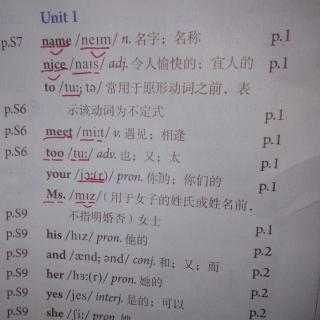 Unit 1
p.S7 name /neɪm/ n. 名字；名称 p.1
nice /naɪs/ adj. 令人愉快的；宜人的 p.1
to /tuː; tə/ 常用于原形动词之前，表
示该动词为不定式 p.1
p.S6 meet /miːt/ v. 遇见；相逢 p.1
p.S6 too /tuː/ adv. 也；又；太 p.1
your /jɔː(r)/ pron. 你的；你们的 p.1
Ms. /mɪz/（用于女子的姓氏或姓名前，
不指明婚否）女士 p.1
p.S9 his /hɪz/ pron. 他的 p.1
p.S9 and /ænd; ənd/ conj. 和；又；而 p.2
p.S9 her /hɜː(r)/ pron. 她的 p.2
p.S9 yes /jes/ interj. 是的；可以 p.2
p.S9 she /ʃiː/ pron. 她 p.2